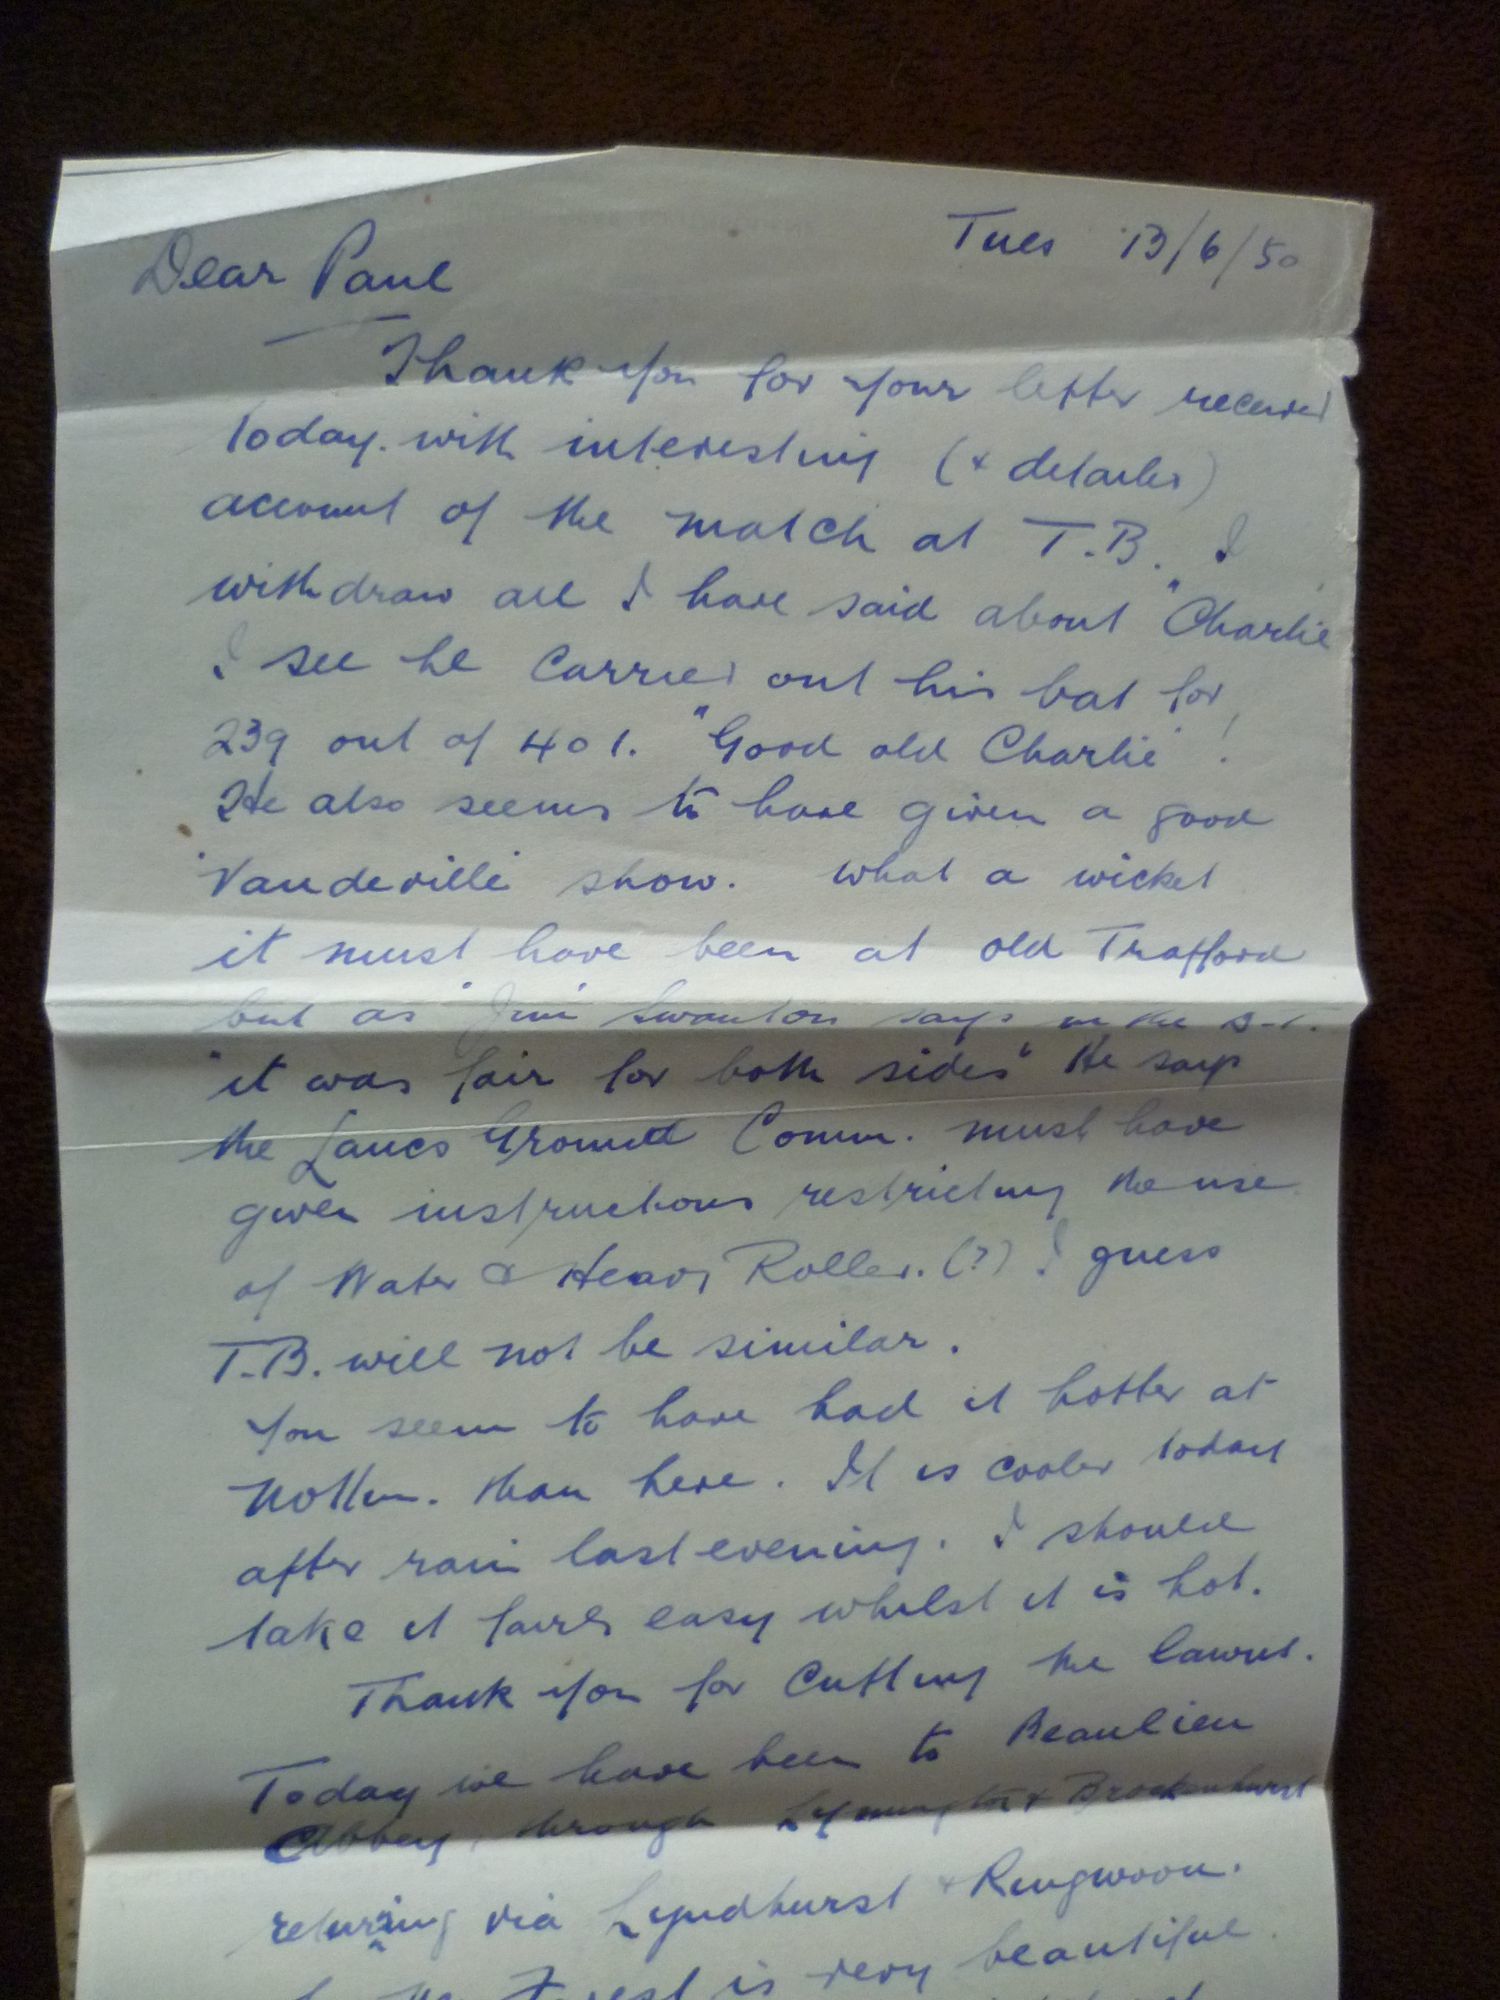 Tues 13/6/50
Dear Paul
Thank you for your letter received
today. with interesting (+ detailed)
account of the match at T.B. I
withdraw all I have said about "Charlie
I see he carried out his bat for
239 out of 401. "Good old Charlie"!
He also seems to have given a good
'Vaudeville' show. What a wicket
it must have been at old Trafford
but as "Jim" Swanton says in the D.T.
"it was fair for both sides" He says
the Lancs Ground Comm. must have
given instructions restricting the use
of Water & Heavy Roller. (?) I guess
T.B. will not be similar.
You seem to have had it hotter at
Nottm. than here. It is cooler today
after rain last evening. I should
take it fairly easy whilst it is hot.
Thank you for cutting the lawns.
Today we have been to Beaulieu
Abbey, through Lymington & Brockenhurst
returing via Lyndhurst & Ringwood.
Forest is very beautiful